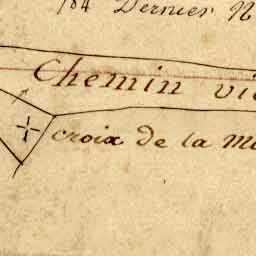 184 Dernier N
Chemin vie
croix de la M